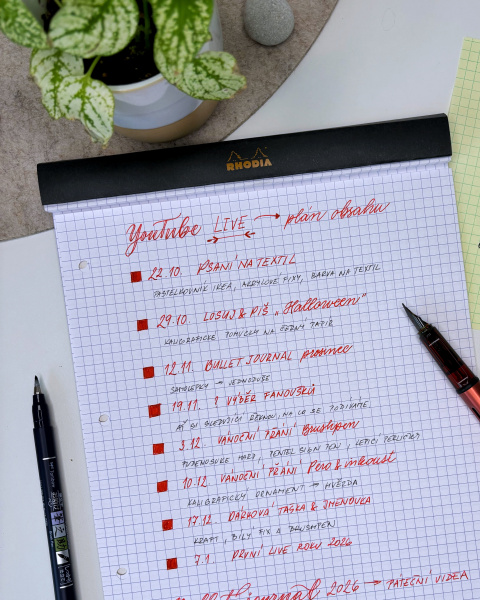 RHODIA
YouTube LIVE → plán obsahu
22.10. PSANÍ NA TEXTIL
PASTELKOVNÍK IKEA, AKRYLOVÉ FIXY, BARVA NA TEXTIL
29.10. LOSUJ & PIŠ „Halloween"
KALIGRAFICKÉ POMŮCKY NA ČERNÝ PAPÍR
12.11. BULLET JOURNAL prosinec
SAMOLEPKY → JEDNODUŠE
19.11. ? VÝBĚR FANOUŠKŮ
AŤ SI SLEDUJÍCÍ ŘEKNOU, NA CO SE PODÍVÁME
3.12. VÁNOČNÍ PŘÁNÍ Brushpen
TUDENOSUKE HARD, PENTEL SIGN PEN, LEPÍCÍ PERLIČKY
10.12. VÁNOČNÍ PŘÁNÍ Pero & inkoust
KALIGRAFICKÝ ORNAMENT → HVĚZDA
17.12. DÁRKOVÁ TAŠKA & JMENOVKA
KRAFT, BÍLÝ FIX A BRUSHPEN
7.1. PRVNÍ LIVE ROKU 2026
journal 2026 → PÁTEČNÍ VIDEA